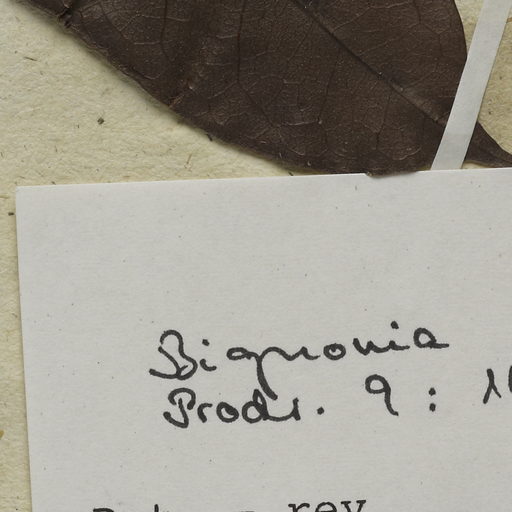 Bignonia
Prodr. 9:
rev